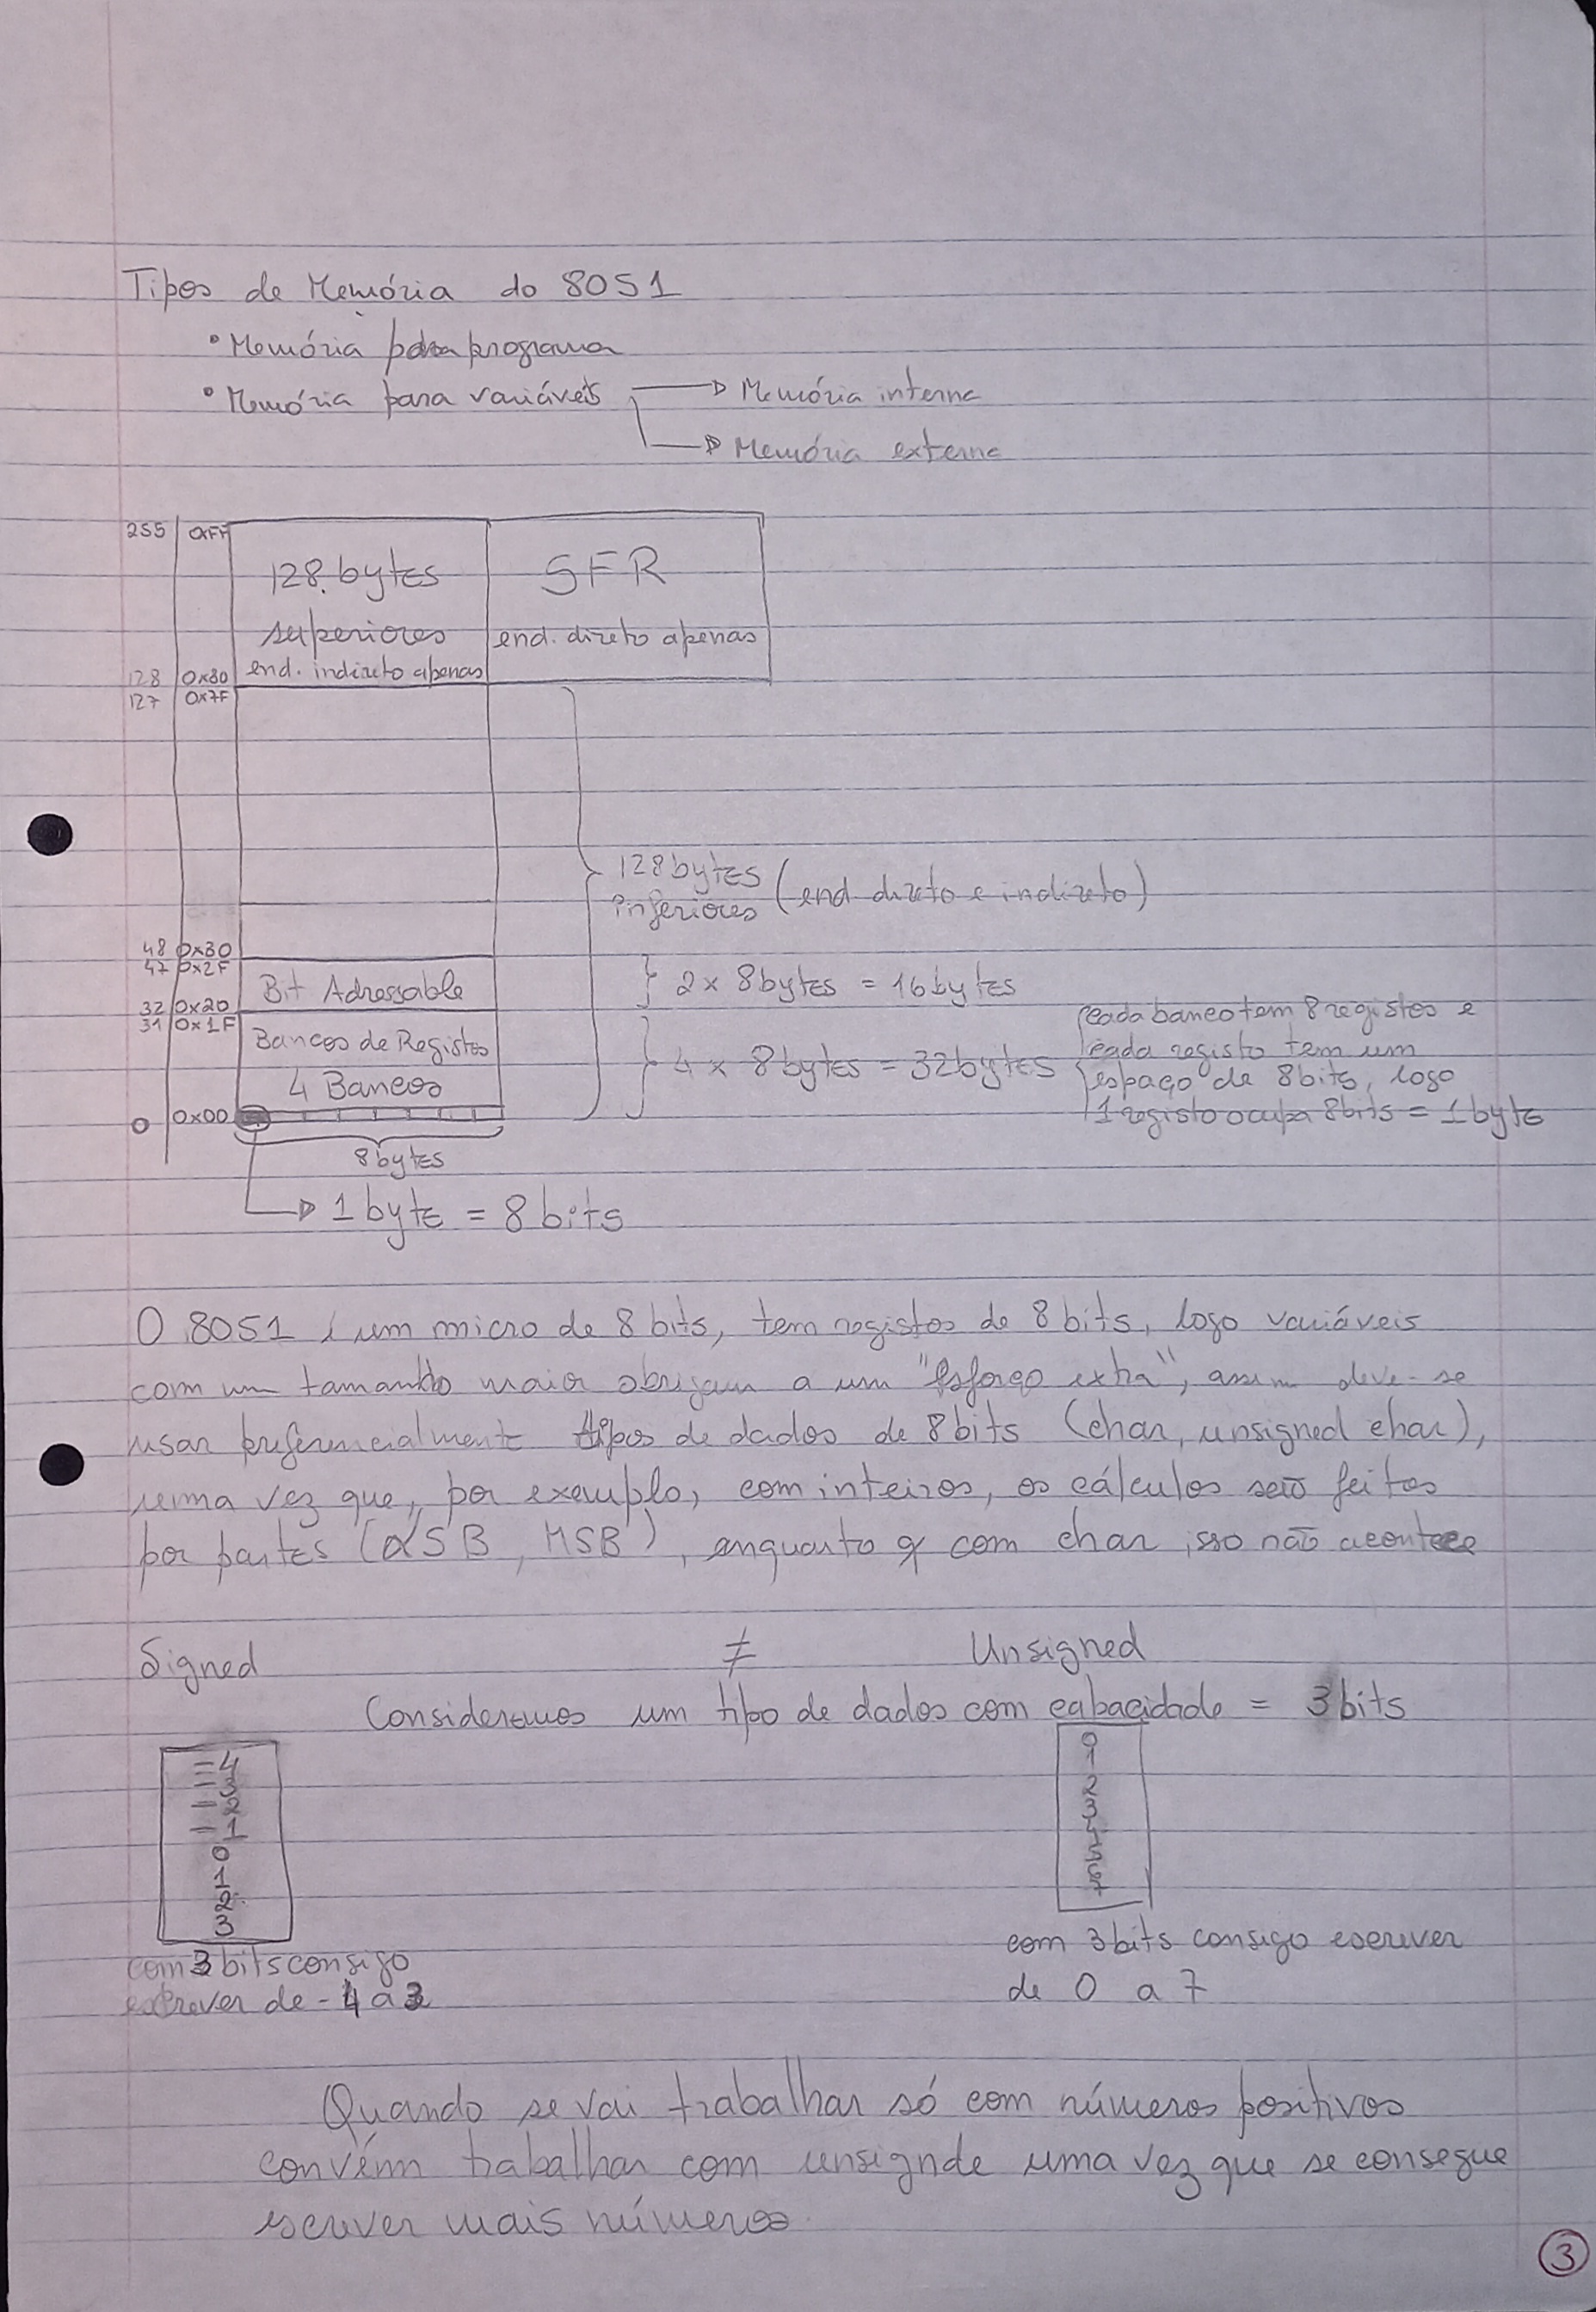 Tipos de Memória do 8051
• Memória para programa
• Memória para variáveis → Memória interna
→ Memória externa
255 0xFF
128 bytes
superiores
end. indireto apenas
SFR
end. direto apenas
128 0x80
127 0x7F
128 bytes
inferiores (end. direto e indireto)
48 0x30
47 0x2F
Bit Adressable
2 x 8 bytes = 16 bytes
32 0x20
31 0x1F
Bancos de Registos
4 Bancos
4 x 8 bytes = 32 bytes
cada banco tem 8 registos e
cada registo tem um
espaço de 8 bits, logo
1 registo ocupa 8 bits = 1 byte
0 0x00
8 bytes
→ 1 byte = 8 bits
O 8051 é um micro de 8 bits, tem registos de 8 bits, logo variáveis
com um tamanho maior obrigam a um "esforço extra", assim deve-se
usar preferencialmente tipos de dados de 8 bits (char, unsigned char),
uma vez que, por exemplo, com inteiros, os cálculos serão feitos
por partes (LSB, MSB), enquanto q com char isso não acontece
Signed ≠ Unsigned
Consideremos um tipo de dados com capacidade = 3 bits
-4
-3
-2
-1
0
1
2
3
com 3 bits consigo
escrever de -4 a 3
0
1
2
3
4
5
6
7
com 3 bits consigo escrever
de 0 a 7
Quando se vai trabalhar só com números positivos
convém trabalhar com unsignde uma vez que se consegue
escrever mais números.
3